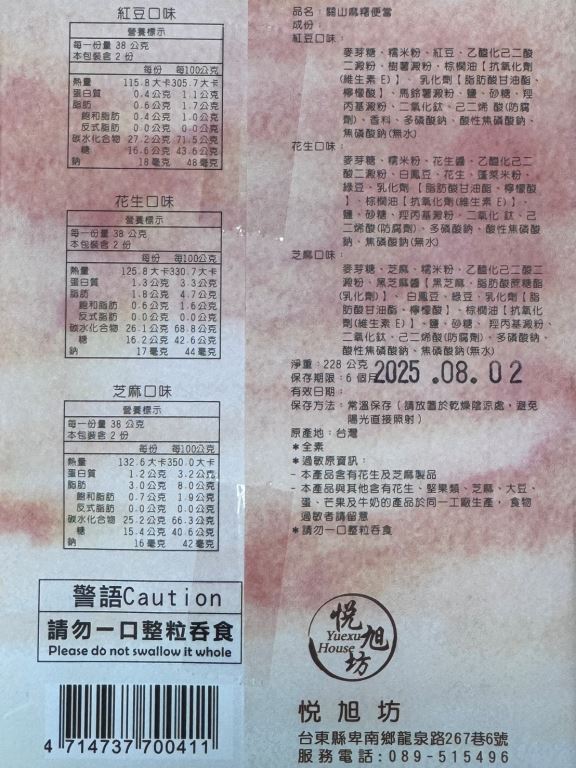 紅豆口味
營養標示
每一份量 38 公克
本包裝含 2 份
每份 每100公克
熱量 115.8 大卡 305.7 大卡
蛋白質 0.4 公克 1.1 公克
脂肪 0.6 公克 1.7 公克
飽和脂肪 0.4 公克 1.0 公克
反式脂肪 0.0 公克 0.0 公克
碳水化合物 27.2 公克 71.5 公克
糖 16.6 公克 43.6 公克
鈉 18 毫克 48 毫克
花生口味
營養標示
每一份量 38 公克
本包裝含 2 份
每份 每100公克
熱量 125.8 大卡 330.7 大卡
蛋白質 1.3 公克 3.3 公克
脂肪 1.8 公克 4.7 公克
飽和脂肪 0.6 公克 1.6 公克
反式脂肪 0.0 公克 0.0 公克
碳水化合物 26.1 公克 68.8 公克
糖 16.2 公克 42.6 公克
鈉 17 毫克 44 毫克
芝麻口味
營養標示
每一份量 38 公克
本包裝含 2 份
每份 每100公克
熱量 132.6 大卡 350.0 大卡
蛋白質 1.2 公克 3.2 公克
脂肪 3.0 公克 8.0 公克
飽和脂肪 0.7 公克 1.9 公克
反式脂肪 0.0 公克 0.0 公克
碳水化合物 25.2 公克 66.3 公克
糖 15.4 公克 40.6 公克
鈉 16 毫克 42 毫克
警語Caution
請勿一口整粒吞食
Please do not swallow it whole
4 714737 700411
品名：關山麻糬便當
成份：
紅豆口味：
麥芽糖、糯米粉、紅豆、乙醯化己二酸
二澱粉、樹薯澱粉、棕櫚油【抗氧化劑
(維生素 E)】、乳化劑【脂肪酸甘油酯、
檸檬酸】、馬鈴薯澱粉、鹽、砂糖、羥
丙基澱粉、二氧化鈦、己二烯 酸(防腐
劑)、香料、多磷酸鈉、酸性焦磷酸鈉、
焦磷酸鈉(無水)
花生口味：
麥芽糖、糯米粉、花生醬、乙醯化己二
酸二澱粉、白鳳豆、花生、蓬萊米粉、
綠豆、乳化劑【脂肪酸甘油酯、檸檬酸
】、棕櫚油【抗氧化劑(維生素 E)】、
鹽、砂糖、羥丙基澱粉、二氧化 鈦、己
二烯酸(防腐劑)、多磷酸鈉、酸性焦磷酸
鈉、焦磷酸鈉(無水)
芝麻口味：
麥芽糖、芝麻、糯米粉、乙醯化己二酸二
澱粉、黑芝麻醬【黑芝麻、脂肪酸蔗糖酯
(乳化劑)】、白鳳豆、綠豆、乳化劑【脂
肪酸甘油酯、檸檬酸】、棕櫚油【抗氧化
劑(維生素 E)】、鹽、砂糖、羥丙基澱粉、
二氧化鈦、己二烯酸(防腐劑)、多磷酸鈉、
酸性焦磷酸鈉、焦磷酸鈉(無水)
淨重：228 公克
保存期限：6 個月
2025.08.02
有效日期：
保存方法：常溫保存（請放置於乾燥陰涼處，避免
陽光直接照射）
原產地：台灣
＊全素
＊過敏原資訊：
- 本產品含有花生及芝麻製品
- 本產品與其他含有花生、堅果類、芝麻、大豆、
蛋、芒果及牛奶的產品於同一工廠生產，食物
過敏者請留意
＊請勿一口整粒吞食
悦旭坊
Yuexu
House
悦旭坊
台東縣卑南鄉龍泉路267巷6號
服務電話：089-515496